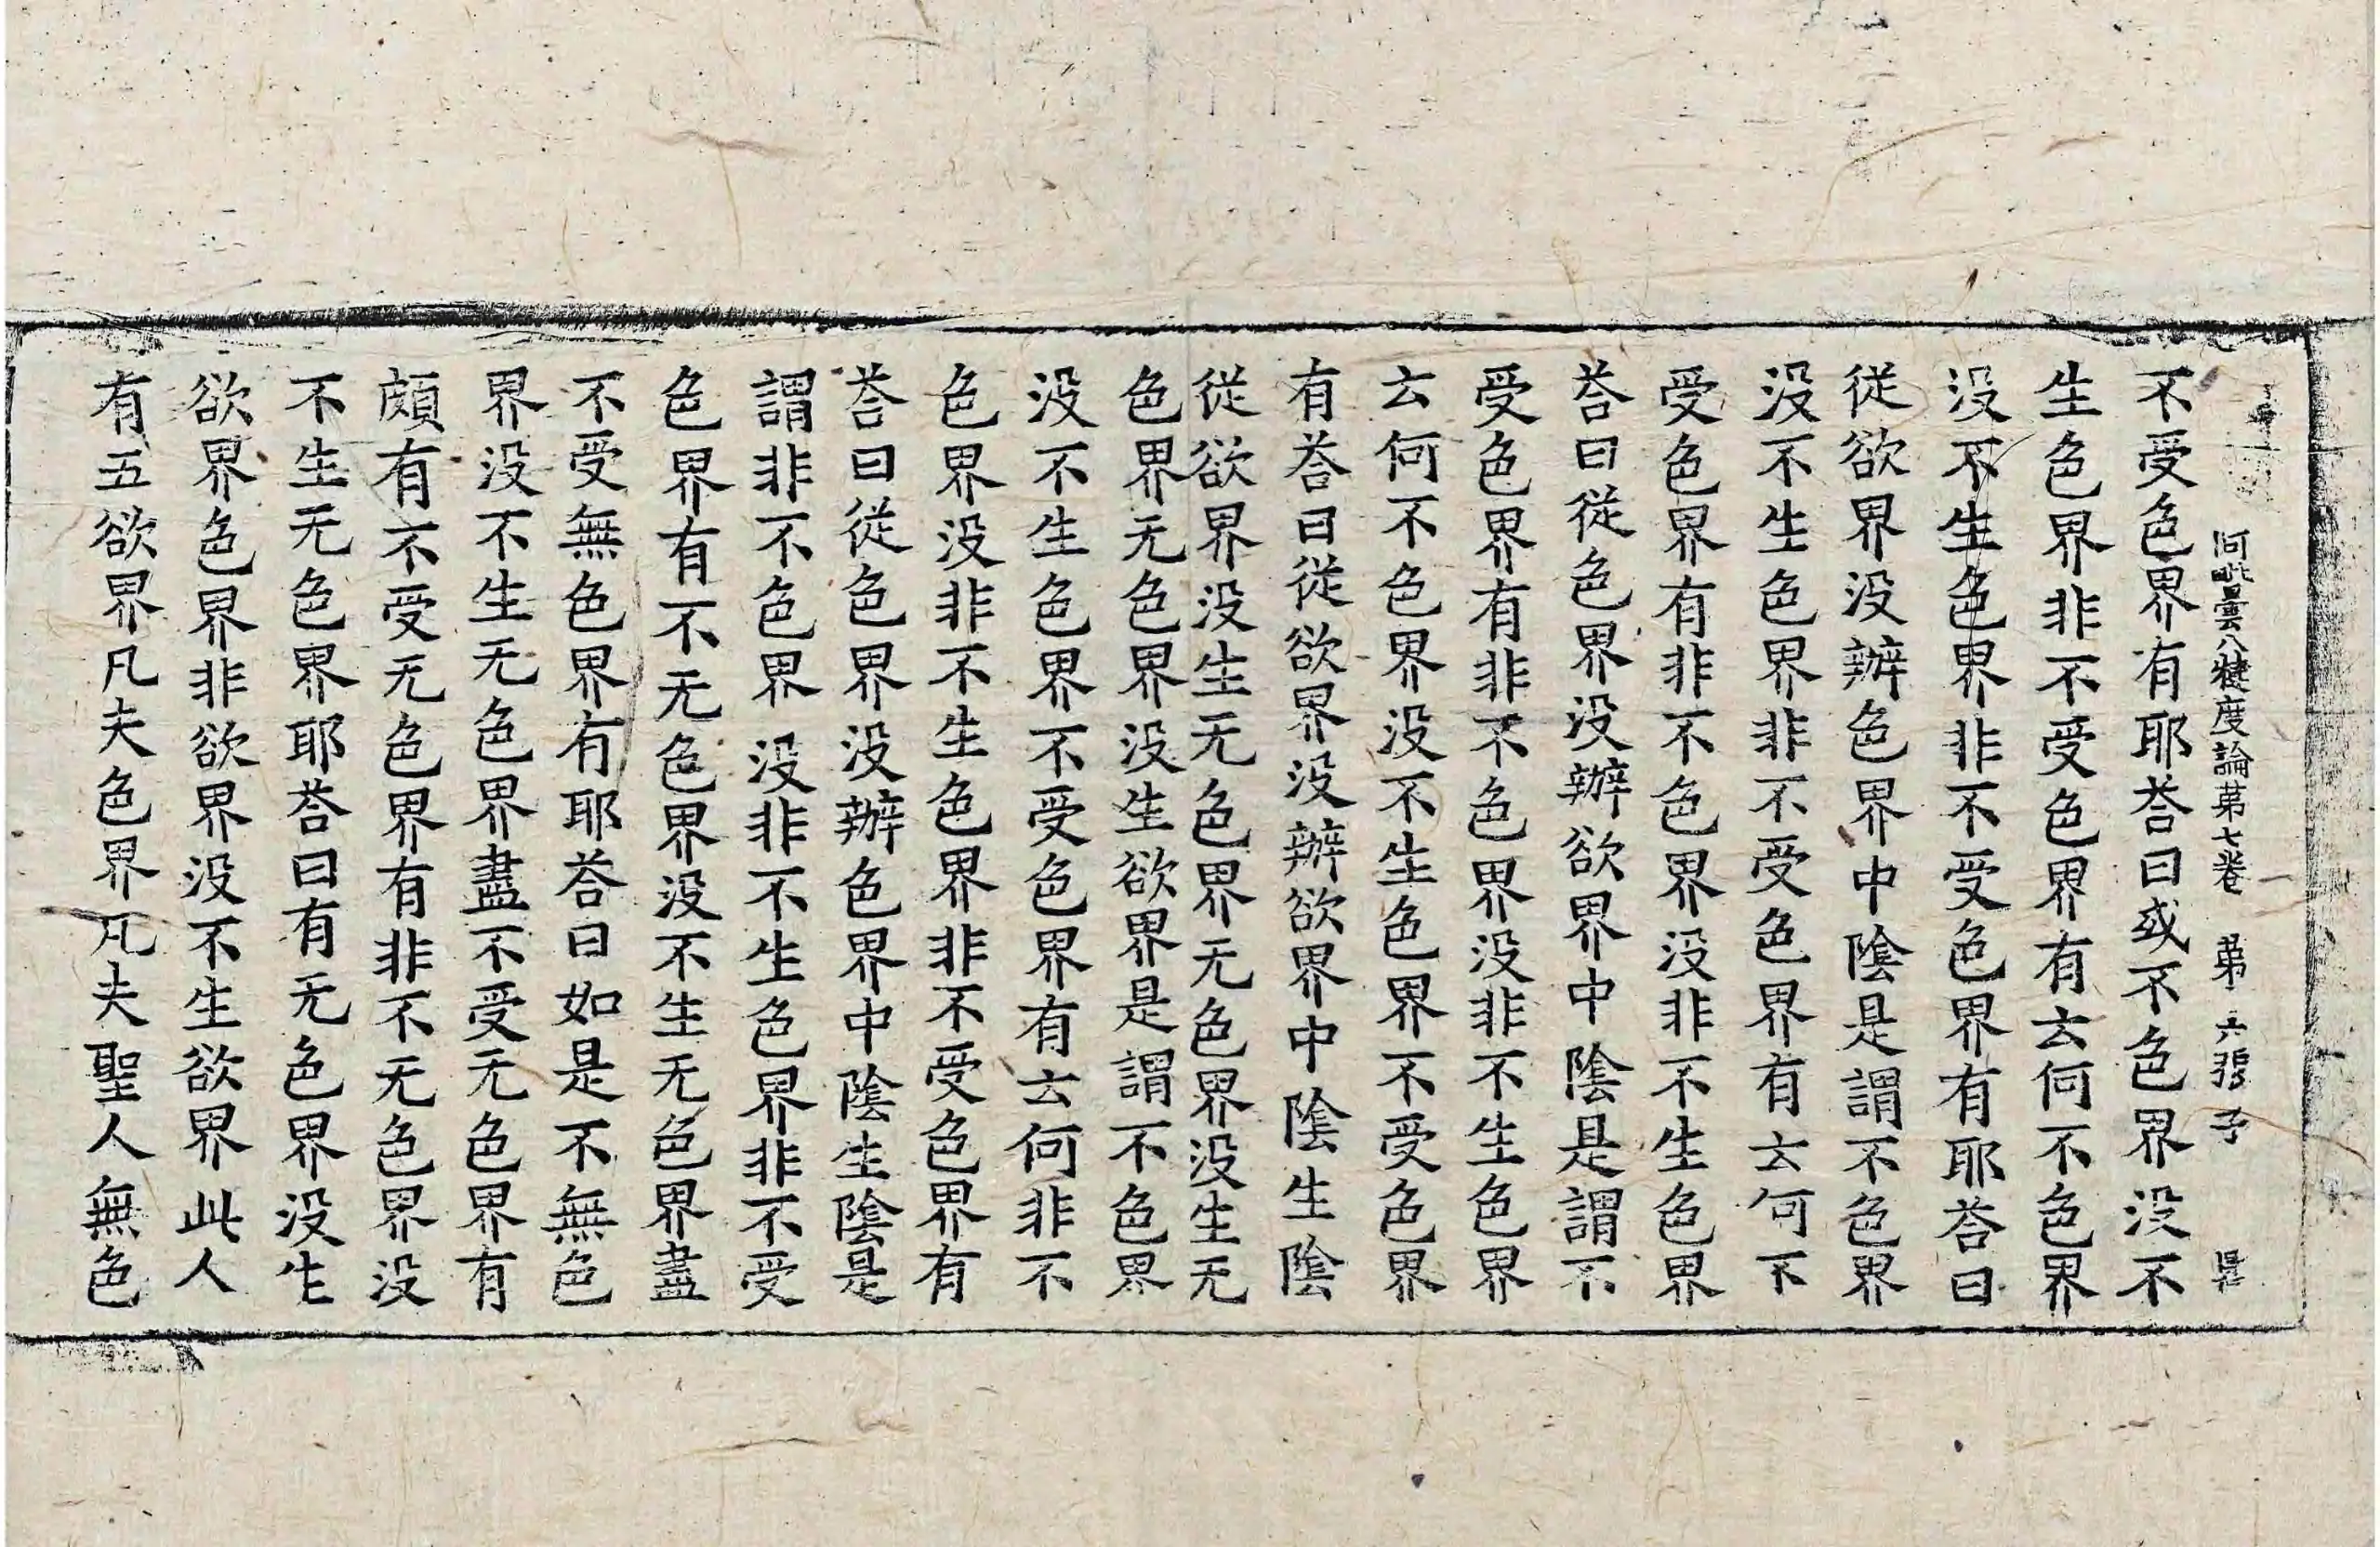 阿毗曇八犍度論苐七卷 苐六張 子
不受色界有耶荅曰或不色界没不
生色界非不受色界有云何不色界
没不生色界非不受色界有耶荅曰
從欲界没辦色界中陰是謂不色界
没不生色界非不受色界有云何不
受色界有非不色界没非不生色界
荅曰從色界没辦欲界中陰是謂不
受色界有非不色界没非不生色界
云何不色界没不生色界不受色界
有荅曰從欲界没辦欲界中陰生陰
從欲界没生无色界无色界没生无
色界无色界没生欲界是謂不色界
没不生色界不受色界有云何非不
色界没非不生色界非不受色界有
荅曰從色界没辦色界中陰生陰是
謂非不色界没非不生色界非不受
色界有不无色界没不生无色界盡
不受無色界有耶荅曰如是不無色
界没不生无色界盡不受无色界有
頗有不受无色界有非不无色界没
不生无色界耶荅曰有无色界没生
欲界色界非欲界没不生欲界此人
有五欲界凡夫色界凡夫聖人無色